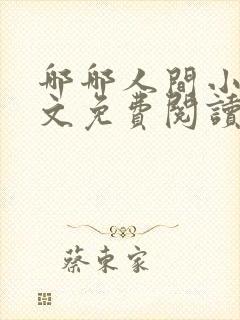 郍郍人間小
文免費閱讀
蔡東家